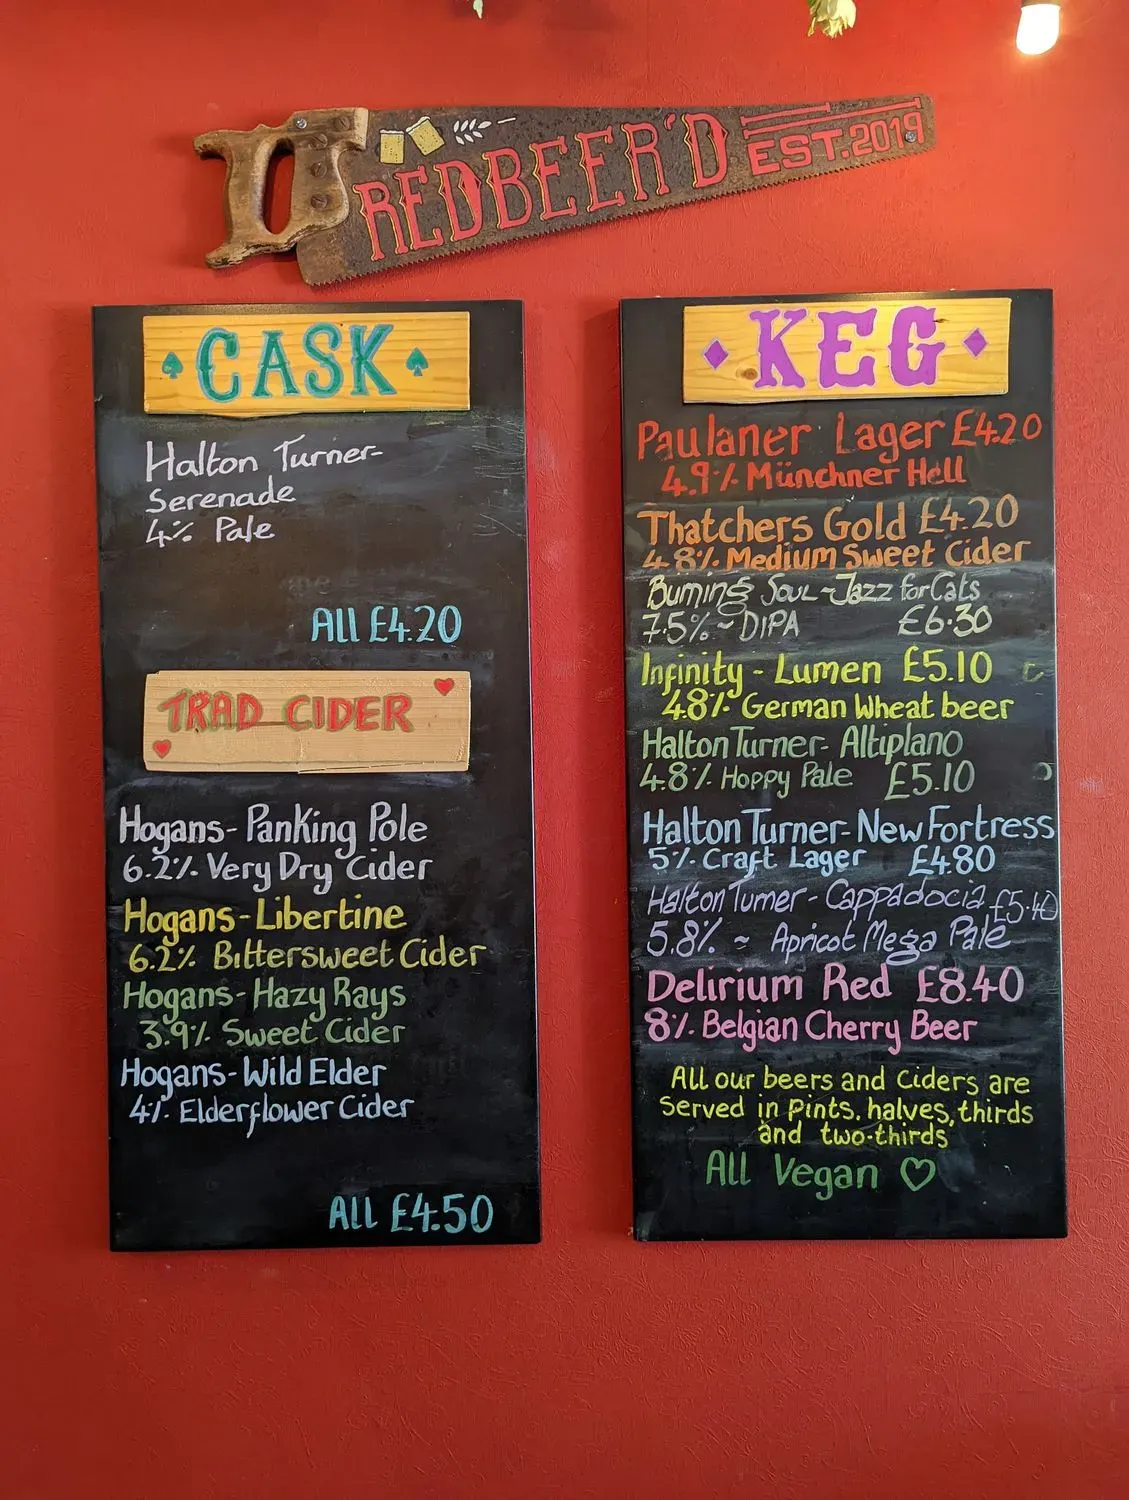 REDBEER'D EST. 2019
CASK
Halton Turner-
Serenade
4% Pale
All £4.20
TRAD CIDER
Hogans - Panking Pole
6.2% Very Dry Cider
Hogans - Libertine
6.2% Bittersweet Cider
Hogans - Hazy Rays
3.9% Sweet Cider
Hogans - Wild Elder
4% Elderflower Cider
All £4.50
KEG
Paulaner Lager £4.20
4.9% Münchner Hell
Thatchers Gold £4.20
4.8% Medium Sweet Cider
Burning Soul ~ Jazz for Cats
7.5% ~ DIPA £6.30
Infinity - Lumen £5.10
4.8% German Wheat beer
Halton Turner - Altiplano
4.8% Hoppy Pale £5.10
Halton Turner - New Fortress
5% Craft Lager £4.80
Halton Turner - Cappadocia £5.40
5.8% ~ Apricot Mega Pale
Delirium Red £8.40
8% Belgian Cherry Beer
All our beers and ciders are
served in pints, halves, thirds
and two-thirds
All Vegan ♡